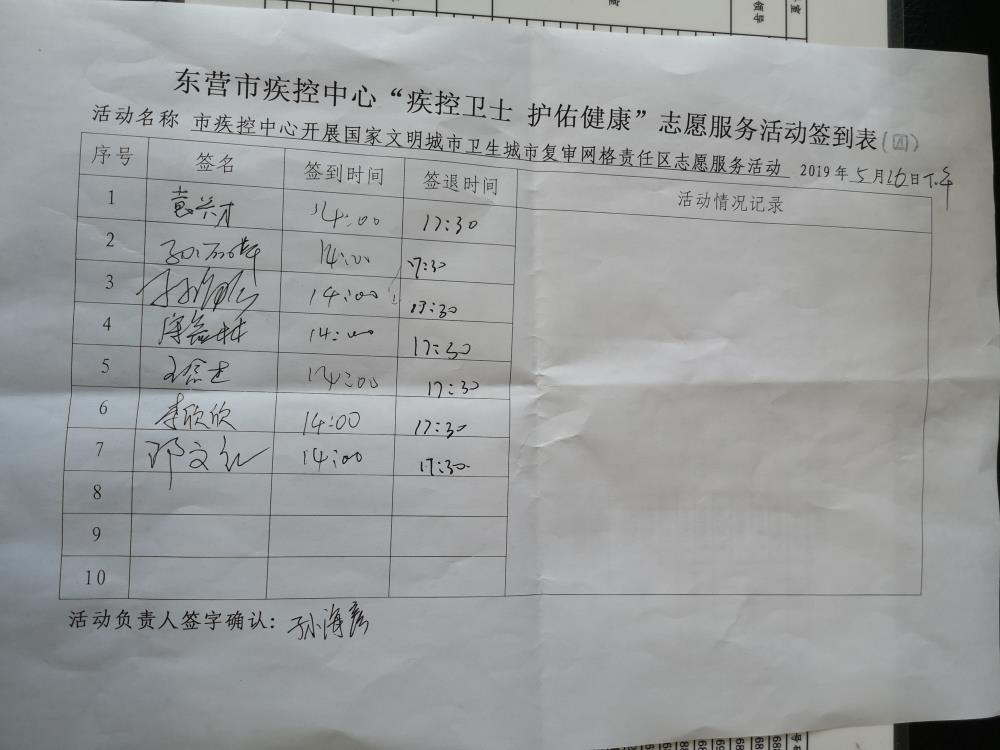 东营市疾控中心“疾控卫士 护佑健康”志愿服务活动签到表(四)
活动名称 市疾控中心开展国家文明城市卫生城市复审网格责任区志愿服务活动 2019年5月26日下午
序号 签名 签到时间 签退时间 活动情况记录
1 袁兴才 14:00 17:30
2 14:00 17:30
3 14:00 17:30
4 14:00 17:30
5 14:00 17:30
6 李欣欣 14:00 17:30
7 邓文红 14:00 17:30
8
9
10
活动负责人签字确认: 孙海彦